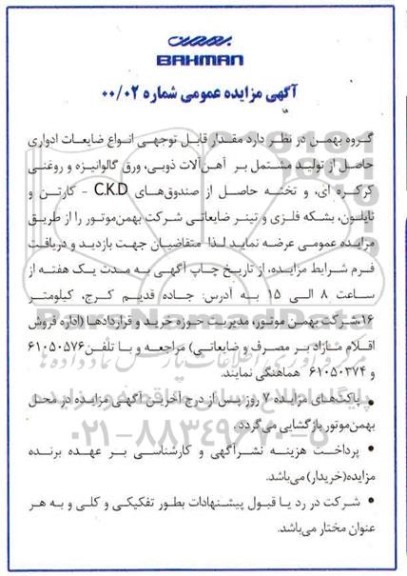 بهمن
BAHMAN
آگهی مزایده عمومی شماره ۰۰/۰۲
گروه بهمن در نظر دارد مقدار قابل توجهی انواع ضایعات ادواری
حاصل از تولید مشتمل بر آهن‌آلات ذوبی، ورق گالوانیزه و روغنی
کرکره ای، و تخته حاصل از صندوق‌های C.K.D - کارتن و
نایلون، بشکه فلزی و تینر ضایعاتی شرکت بهمن‌موتور را از طریق
مزایده عمومی عرضه نماید لذا متقاضیان جهت بازدید و دریافت
فرم شرایط مزایده، از تاریخ چاپ آگهی به مدت یک هفته از
ساعت ۸ الی ۱۵ به آدرس: جاده قدیم کرج، کیلومتر
۱۶شرکت بهمن موتور، مدیریت حوزه خرید و قراردادها (اداره فروش
اقلام مازاد بر مصرف و ضایعاتی) مراجعه و با تلفن۶۱۰۵۰۵۷۶
و ۶۱۰۵۰۳۷۴ هماهنگی نمایند.
• پاکت‌های مزایده ۷ روز پس از درج آخرین آگهی مزایده در محل
بهمن‌موتور بازگشایی می‌گردد.
• پرداخت هزینه نشرآگهی و کارشناسی بر عهده برنده
مزایده(خریدار) می‌باشد.
• شرکت در رد یا قبول پیشنهادات بطور تفکیکی و کلی و به هر
عنوان مختار می‌باشد.
۰۲۱-۸۸۳۴۹۶۷۰-۵